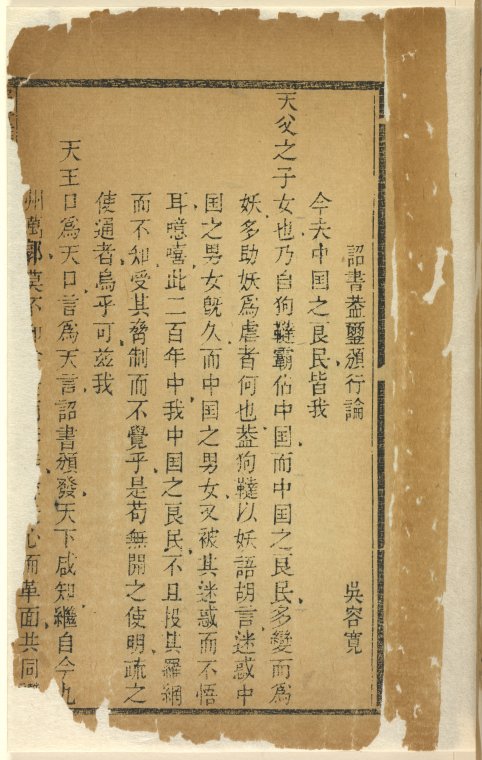 詔書葢璽頒行論
吳容寬
今夫中囯之良民皆我
天父之子女也乃自狗韃霸佔中囯而中囯之良民多變而爲
妖多助妖爲虐者何也葢狗韃以妖語胡言迷惑中
囯之男女旣久而中囯之男女又被其迷惑而不悟
耳噫嘻此二百年中我中囯之良民不且投其羅網
而不知受其脅制而不覺乎是苟無開之使明疏之
使通者烏乎可茲我
天王口爲天口言爲天言詔書頒發天下咸知繼自今九
州萬郭莫不心而革面共同